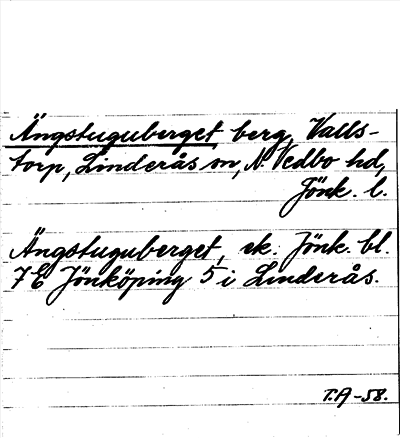 Ängstuguberget, berg, Valls-
torp, Linderås sn, N. Vedbo hd,
Jönk. l.
Ängstuguberget, ek. Jönk. bl.
7E Jönköping 5 i Linderås.
T.A -58.